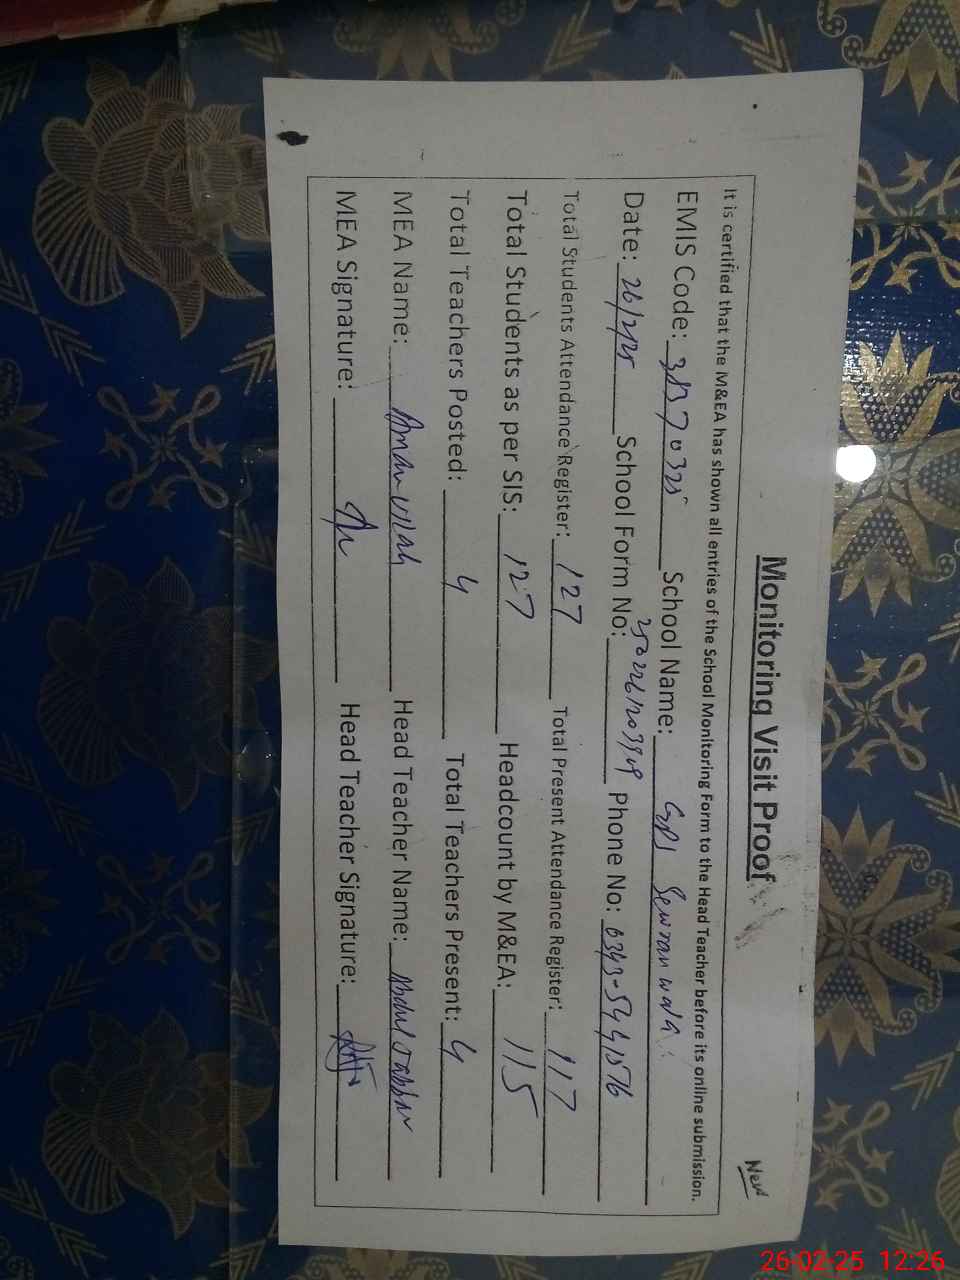 New
Monitoring Visit Proof
It is certified that the M&EA has shown all entries of the School Monitoring Form to the Head Teacher before its online submission.
EMIS Code: School Name: GPS
Date: 26/2/25 School Form No: Phone No:
Total Students Attendance Register: 127 Total Present Attendance Register: 117
Total Students as per SIS: 127 Headcount by M&EA: 115
Total Teachers Posted: 4 Total Teachers Present: 4
MEA Name: Aman ullah Head Teacher Name: Abdul Jabbar
MEA Signature: Head Teacher Signature:
26-02-25 12:26